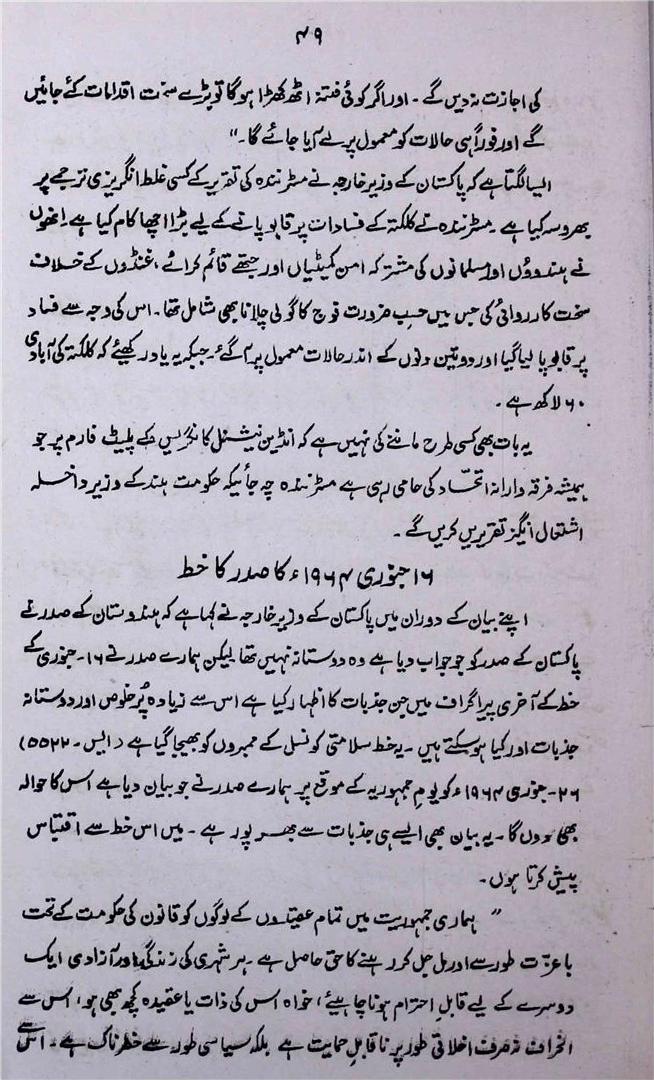 ۴۹
کی اجازت نہ دیں گے۔ اور اگر کوئی فتنہ اٹھ کھڑا ہوگا تو بڑے سخت اقدامات کئے جائیں
گے اور فوراً ہی حالات کو معمول پر لے آیا جائے گا۔"
ایسا لگتا ہے کہ پاکستان کے وزیر خارجہ نے مسٹر نندہ کی تقریر کے کسی غلط انگریزی ترجمے پر
بھروسہ کیا ہے۔ مسٹر نندہ نے کلکتہ کے فسادات پر قابو پانے کے لیے بڑا اچھا کام کیا ہے۔ انھوں
نے ہندوؤں اور مسلمانوں کی مشترکہ امن کمیٹیاں اور جتھے قائم کرائے، غنڈوں کے خلاف
سخت کارروائی کی جس میں حسب ضرورت فوج کا گولی چلانا بھی شامل تھا۔ اس کی وجہ سے فساد
پر قابو پا لیا گیا اور دو تین دنوں کے اندر حالات معمول پر آ گئے۔ جبکہ یہ یاد رکھیئے کہ کلکتہ کی آبادی
۶۰ لاکھ ہے۔
یہ بات بھی کسی طرح ماننے کی نہیں ہے کہ انڈین نیشنل کانگریس کے پلیٹ فارم پر جو
ہمیشہ فرقہ وارانہ اتحّاد کی حامی رہی ہے مسٹر نندہ چہ جائیکہ حکومت ہند کے وزیر داخلہ
اشتعال انگیز تقریریں کریں گے۔
۱۶ جنوری ۱۹۶۴ء کا صدر کا خط
اپنے بیان کے دوران میں پاکستان کے وزیر خارجہ نے کہا ہے کہ ہندوستان کے صدر نے
پاکستان کے صدر کو جو جواب دیا ہے وہ دوستانہ نہیں تھا لیکن ہمارے صدر نے ۱۶۔ جنوری کے
خط کے آخری پیراگراف میں جن جذبات کا اظہار کیا ہے اس سے زیادہ پُر خلوص اور دوستانہ
جذبات اور کیا ہو سکتے ہیں۔ یہ خط سلامتی کونسل کے ممبروں کو بھیجا گیا ہے (ایس۔ ۵۵۲۲)
۲۶۔ جنوری ۱۹۶۴ء کو یوم جمہوریہ کے موقع پر ہمارے صدر نے جو بیان دیا ہے اس کا حوالہ
بھی دوں گا۔ یہ بیان بھی ایسے ہی جذبات سے بھر پور ہے۔ میں اس خط سے اقتباس
پیش کرتا ہوں۔
" ہماری جمہوریت میں تمام عقیدوں کے لوگوں کو قانون کی حکومت کے تحت
با عزّت طور سے اور مل جل کر رہنے کا حق حاصل ہے۔ ہر شہری کی زندگی اور آزادی ایک
دوسرے کے لیے قابل احترام ہونا چاہیئے، خواہ اس کی ذات یا عقیدہ کچھ بھی ہو، اس سے
انحراف نہ صرف اخلاقی طور پر ناقابل حمایت ہے بلکہ سیاسی طور سے خطرناک ہے۔ اس